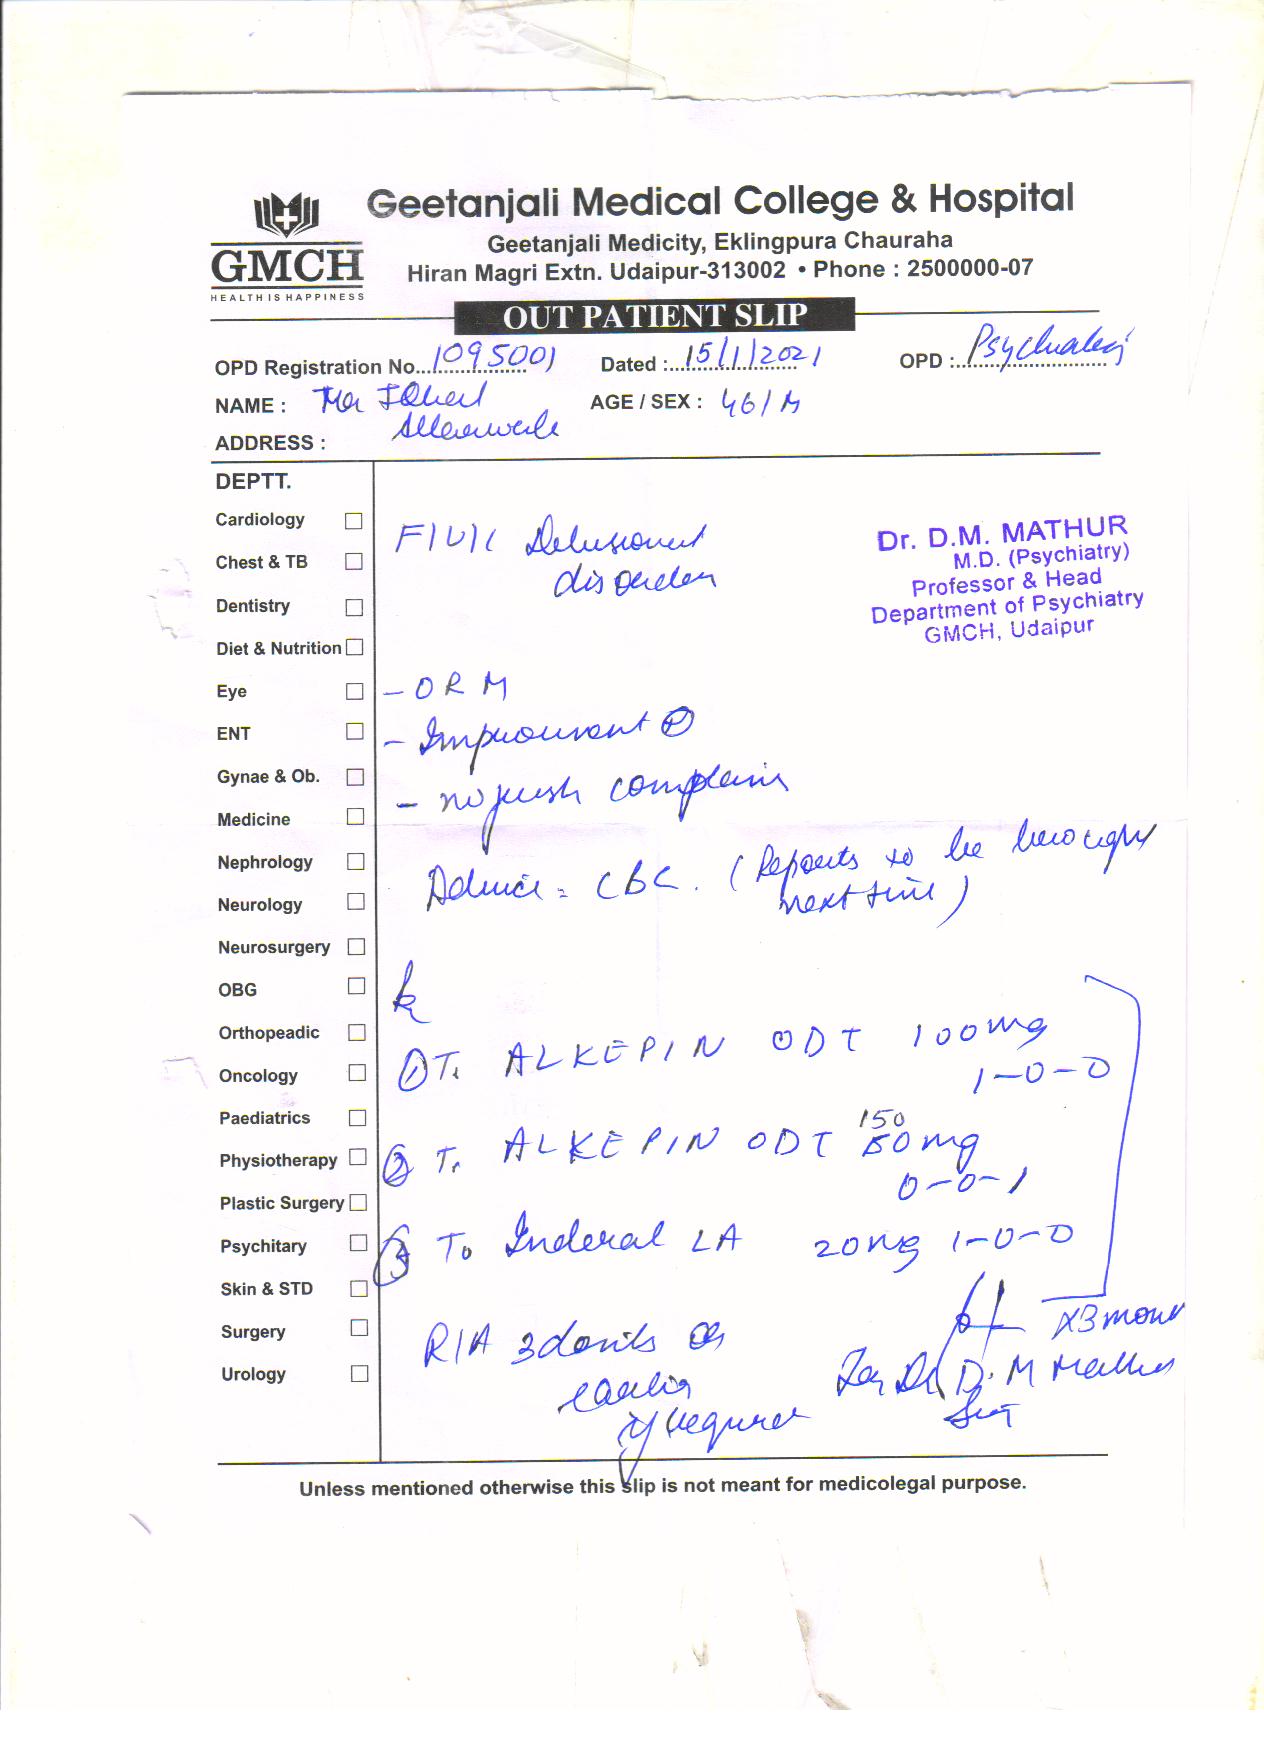 Geetanjali Medical College & Hospital
Geetanjali Medicity, Eklingpura Chauraha
Hiran Magri Extn. Udaipur-313002 • Phone : 2500000-07
GMCH
HEALTH IS HAPPINESS
OUT PATIENT SLIP
OPD Registration No. 1095001 Dated : 15/1/2021 OPD : Psychiatry
NAME : AGE / SEX : 46/M
ADDRESS :
DEPTT.
Cardiology
Chest & TB
Dentistry
Diet & Nutrition
Eye
ENT
Gynae & Ob.
Medicine
Nephrology
Neurology
Neurosurgery
OBG
Orthopeadic
Oncology
Paediatrics
Physiotherapy
Plastic Surgery
Psychitary
Skin & STD
Surgery
Urology
F/U/C Delusional
disorder
Dr. D.M. MATHUR
M.D. (Psychiatry)
Professor & Head
Department of Psychiatry
GMCH, Udaipur
- O R M
- Improvement P
- no fresh complains
Advice = CBC. (Reports to be brought
next time)
1 T. ALKEPIN ODT 100mg
1-0-0
150
2 T. ALKEPIN ODT 50mg
0-0-1
3 T. Inderal LA 20mg 1-0-0
x3 mon
R/A 3 months or
earlier
if required
For Dr D. M Mathur
Unless mentioned otherwise this slip is not meant for medicolegal purpose.